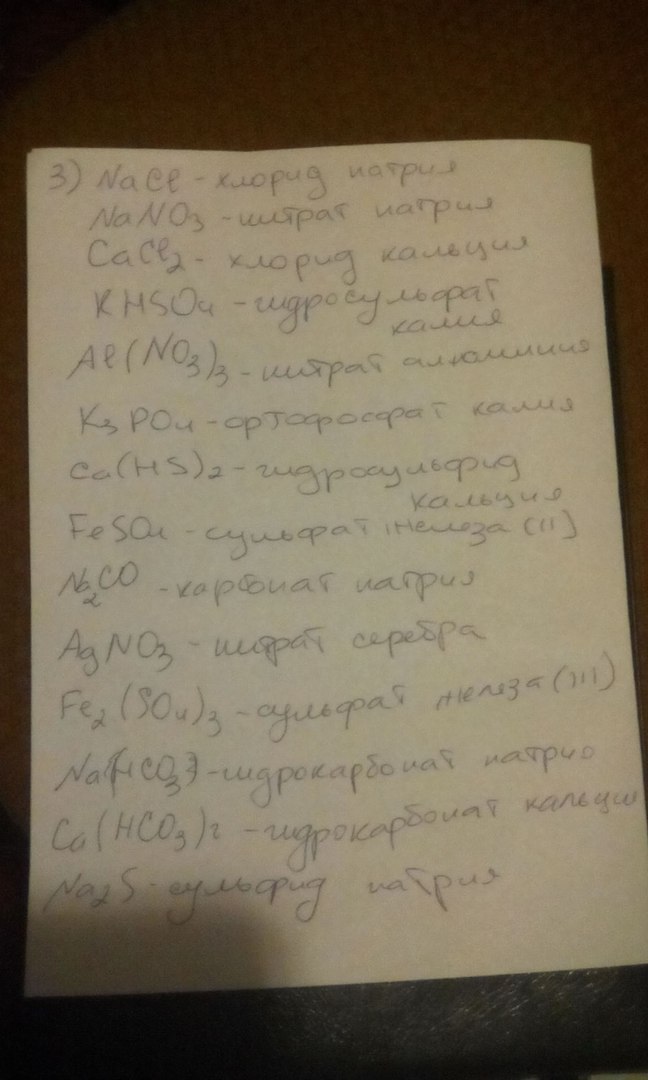 3) NaCl - хлорид натрия
NaNO3 - нитрат натрия
CaCl2 - хлорид кальция
KHSO4 - гидросульфат
калия
Al(NO3)3 - нитрат алюминия
K3PO4 - ортофосфат калия
Ca(HS)2 - гидросульфид
кальция
FeSO4 - сульфат железа (II)
Na2CO - карбонат натрия
AgNO3 - нитрат серебра
Fe2(SO4)3 - сульфат железа (III)
Na(HCO3) - гидрокарбонат натрию
Ca(HCO3)2 - гидрокарбонат кальция
Na2S - сульфид натрия